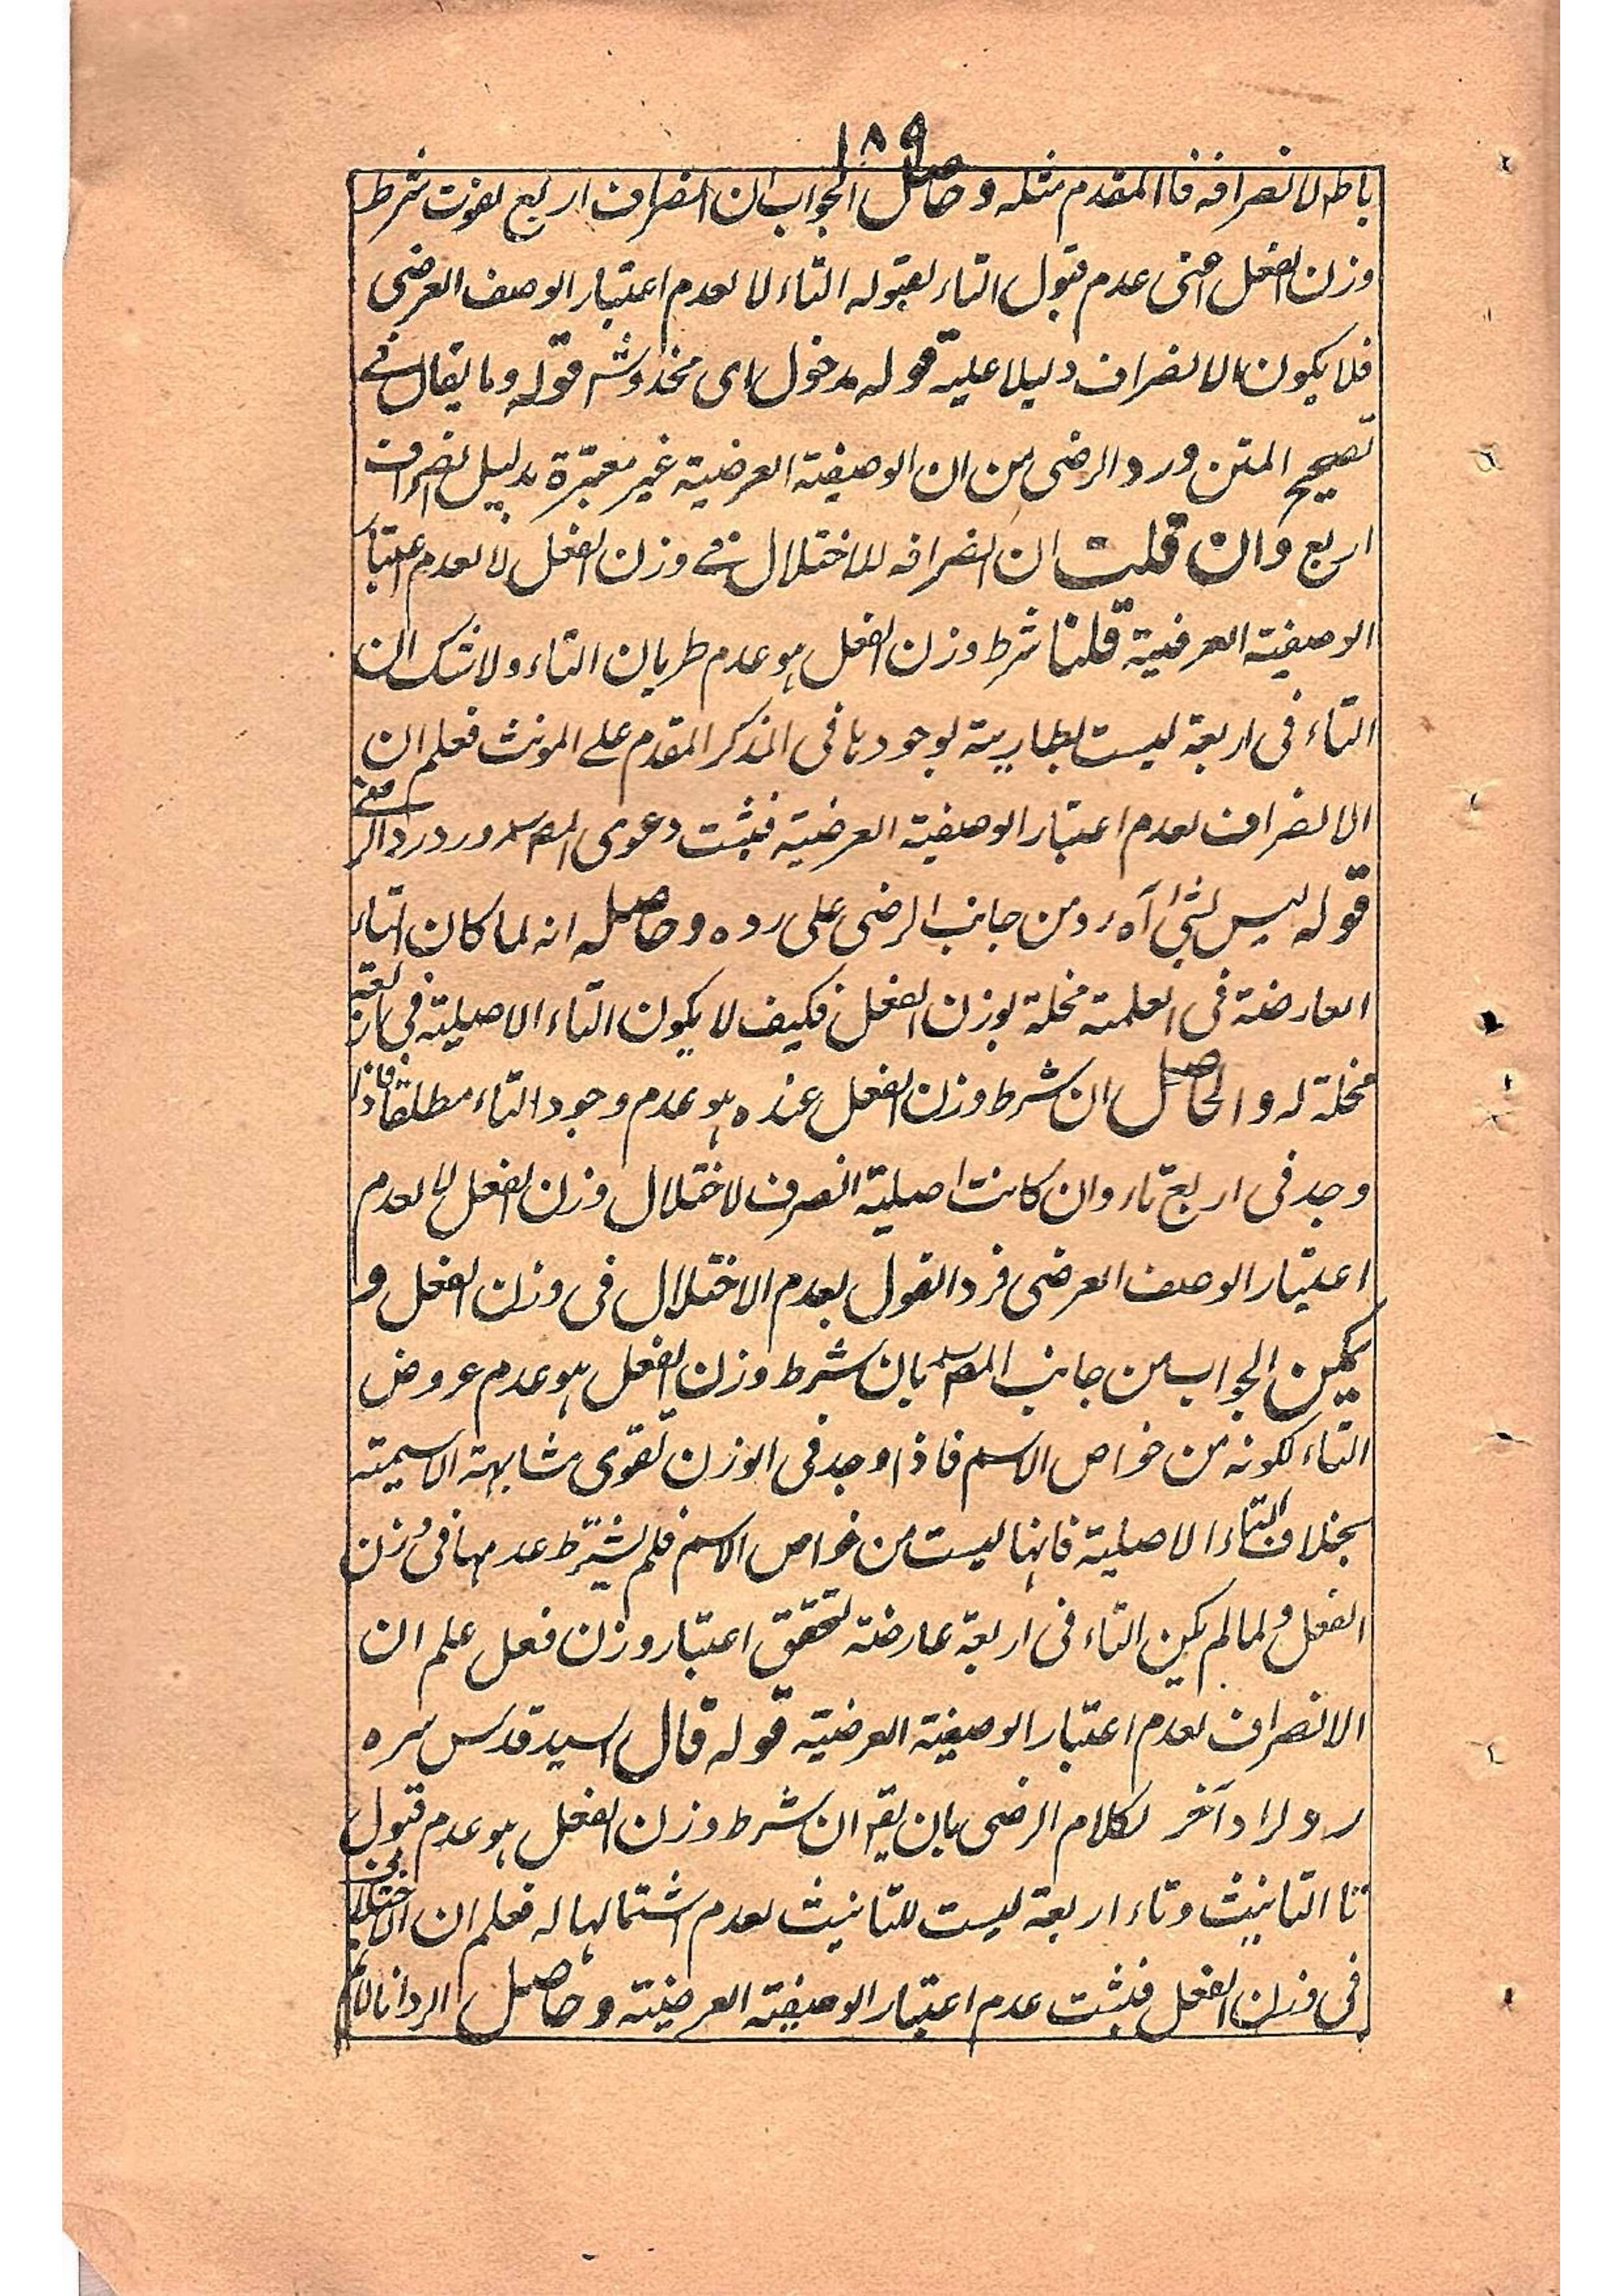 ١٨٩
باطل لانصرافه فالمقدم مثله وحاصل الجواب ان انصراف اربع لفوت شرط
وزن الفعل اعنى عدم قبول التاء لقبوله التاء لا لعدم اعتبار الوصف العرضى
فلا يكون الانصراف دليلا عليه قوله مدخول اى مخدوش قوله وما يقال فے
تصحيح المتن ورد الرضى من ان الوصفية العرضية غير معتبرة بدليل انصراف
اربع وان قلت ان انصرافه للاختلال فے وزن الفعل لا لعدم اعتبار
الوصفية العرضية قلنا شرط وزن الفعل هو عدم طريان التاء ولا شك ان
التاء فى اربعة ليست بطارية لوجودها فى المذكر المقدم على المونث فعلم ان
الانصراف لعدم اعتبار الوصفية العرضية فيثبت دعوى المصـ ورد رد الرضے
قوله ليس بشئ آه رد من جانب الرضى على رده وحاصله انه لما كان التاء
العارضة فى العلمية مخلة بوزن الفعل فكيف لا يكون التاء الاصلية فى اربعة
مخلة له والحاصل ان شرط وزن الفعل عنده هو عدم وجود التاء مطلقا فاذا
وجد فى اربع تاء وان كانت اصلية انصرف لاختلال وزن الفعل لا لعدم
اعتبار الوصف العرضى فرد القول بعدم الاختلال فى وزن الفعل و
يمكن الجواب من جانب المصـ بان شرط وزن الفعل هو عدم عروض
التاء لكونه من خواص الاسم فاذا وجد فى الوزن تقوى مشابهة الاسمية
بخلاف التاء الاصلية فانها ليست من خواص الاسم فلم يشترط عدمها فى وزن
الفعل ولما لم يكن التاء فى اربعة عارضة لتحقق اعتبار وزن فعل علم ان
الانصراف لعدم اعتبار الوصفية العرضية قوله قال السيد قدس سره
رد لراد آخر لكلام الرضى بان يقـ ان شرط وزن الفعل هو عدم قبول
تا التانيث وتاء اربعة ليست للتانيث لعدم اشتمالها له فعلم ان الاختلال
فى وزن الفعل فيثبت عدم اعتبار الوصفية العرضية وحاصل الرد انا لانم